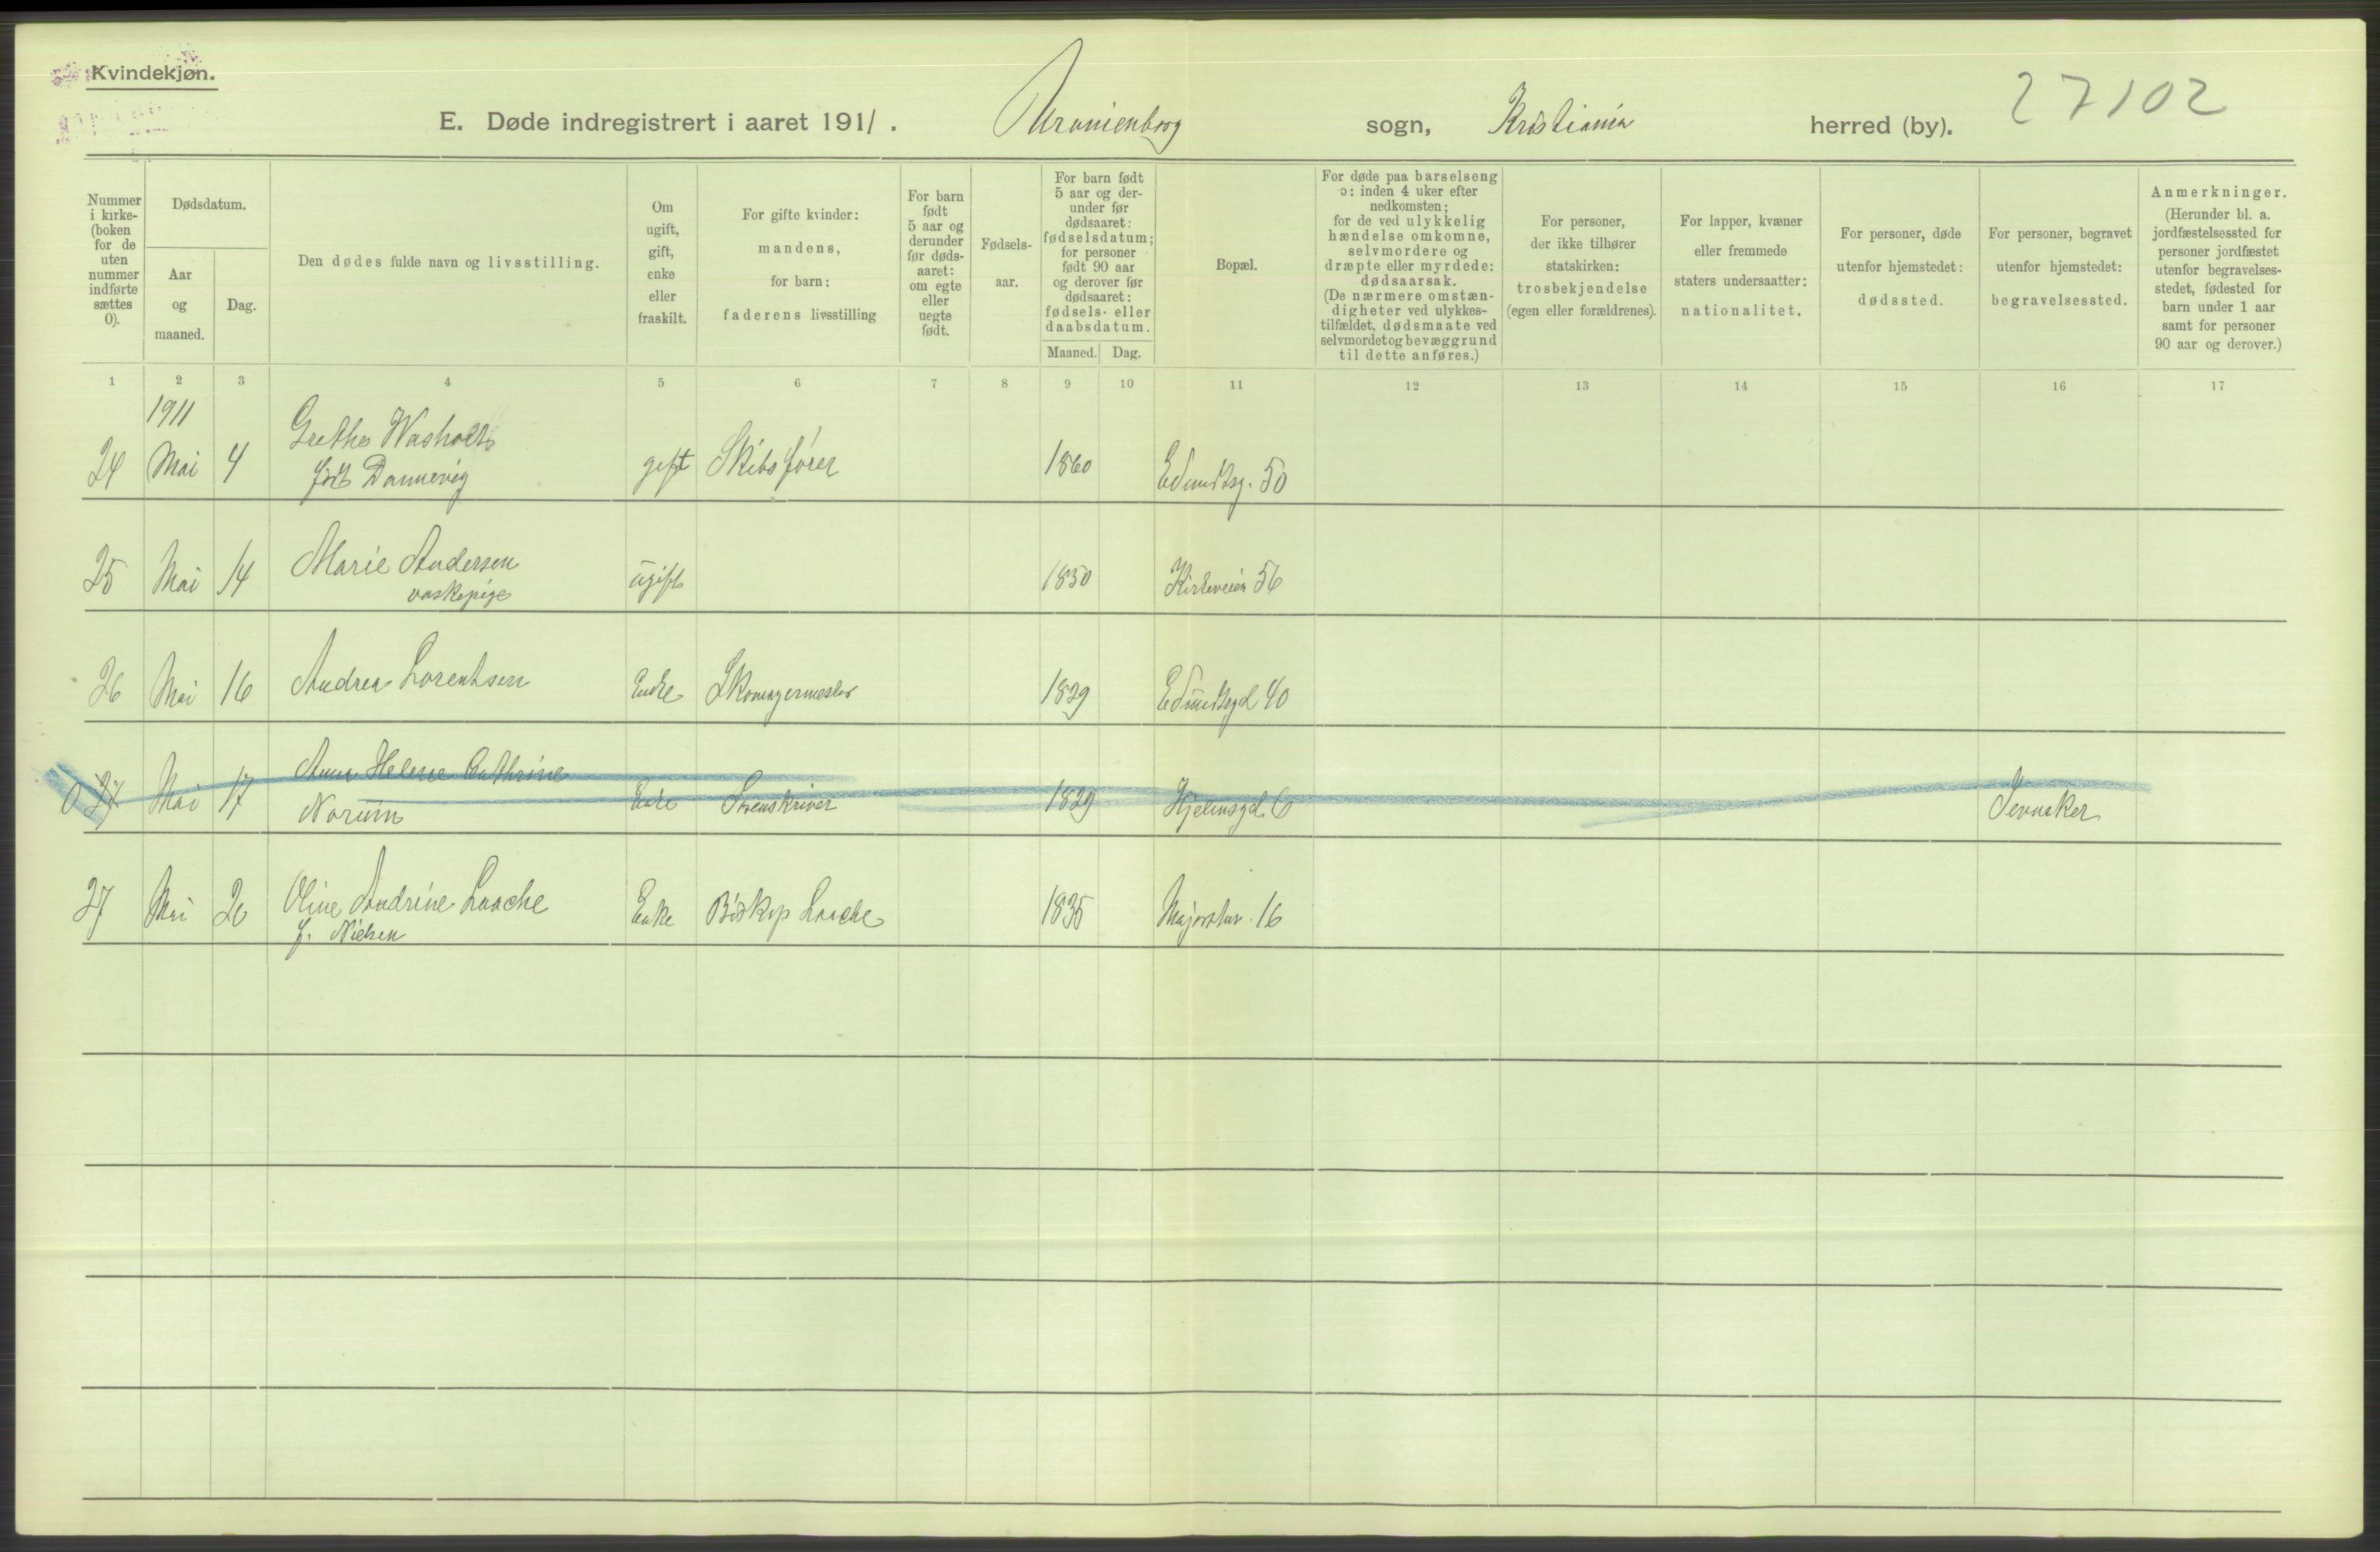 Kvindekjøn.
E. Døde indregistrert i aaret 1911. Uranienborg sogn, Kristiania herred (by). 27102
Nummer i kirke- (boken for de uten nummer indførte sættes 0).
Dødsdatum.
Aar og maaned.
Dag.
Den dødes fulde navn og livsstilling.
Om ugift, gift, enke eller fraskilt.
For gifte kvinder: mandens, for barn: faderens livsstilling
For barn født 5 aar og derunder før døds- aaret: om egte eller uegte født.
Fødsels- aar.
For barn født 5 aar og der- under før dødsaaret: fødselsdatum; for personer født 90 aar og derover før dødsaaret: fødsels- eller daabsdatum.
Maaned. Dag.
Bopæl.
For døde paa barselseng ɔ: inden 4 uker efter nedkomsten; for de ved ulykkelig hændelse omkomne, selvmordere og dræpte eller myrdede: dødsaarsak. (De nærmere omstæn- digheter ved ulykkes- tilfældet, dødsmaate ved selvmordet og bevæggrund til dette anføres.)
For personer, der ikke tilhører statskirken: trosbekjendelse (egen eller forældrenes).
For lapper, kvæner eller fremmede staters undersaatter: nationalitet.
For personer, døde utenfor hjemstedet: dødssted.
For personer, begravet utenfor hjemstedet: begravelsessted.
Anmerkninger. (Herunder bl. a. jordfæstelsessted for personer jordfæstet utenfor begravelses- stedet, fødested for barn under 1 aar samt for personer 90 aar og derover.)
1 2 3 4 5 6 7 8 9 10 11 12 13 14 15 16 17
1911
24 Mai 4 Grethe Washolt gift Skibsfører 1860 Edmundsg. 50
født Dannevig
25 Mai 14 Marie Andersen ugift 1850 Kirkeveien 56
vaskepige
26 Mai 16 Andrea Lorentsen Enke Skomagermester 1829 Edmundsgd 40
Anna Helene Cathrine
0 27 Mai 17 Norum Enke 1829 Hjelmsgd. 6 Jevnaker
27 Mai 26 Oline Andrine Laache Enke Biskop Laache 1835 Majorstuv. 16
f. Nielsen